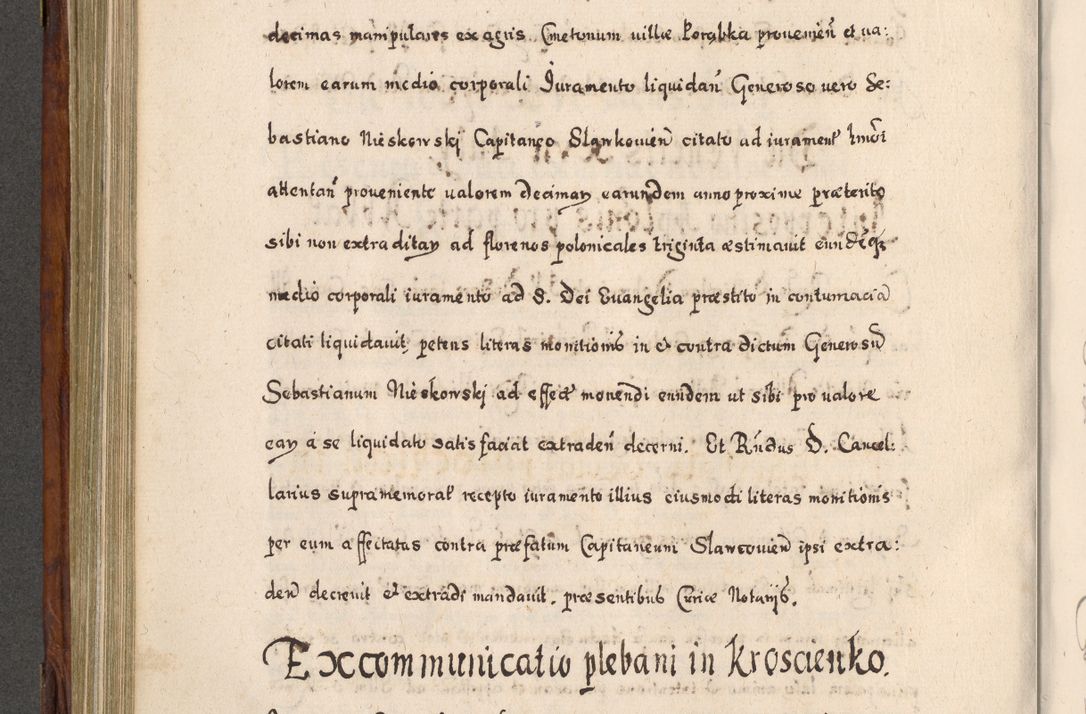 decimas manipulares ex agris Cmetonum villæ Porąbka provenien̄ et va:
lorem earum medio corporali Juramento liquidan̄ Generoso vero Se:
bastiano Nieskowskj Capitaneo Slawkovien̄ citato ad iurament̄ hmōi
attentan̄ proveniente valorem Decimaꝝ earundem anno proxime præterito
sibi non extraditaꝝ ad florenos polonicales triginta æstimavit eundēqꝫ
medio corporali iuramento ad S. Dei Evangelia præstito in contumaciā
citati liquidavit, petens literas monitionis in et contra dictum Generosū
Sebastianum Nieskowskj ad effect̄ monendi eundem ut sibi pro valore
eaꝝ a se liquidato satisfaciat extraden̄ decerni. Et Rn̄dus D. Cancel:
larius supramemorat̄ recepto iuramento illius eiusmodi literas monitionis
per eum affectatas contra præfatum Capitaneum Slawcovien̄ ipsi extra:
den̄ decrevit et extradi mandavit. præsentibus Curiæ Notarijs.
Excommunicatio plebani in Kroscienko.